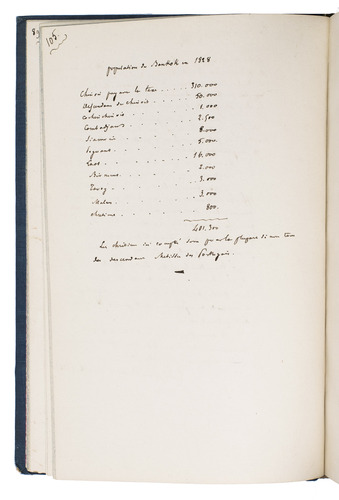 105.
population de Bankok en 1828
Chinois payant la taxe . . . . 310.000
descendans de chinois . . . . 50.000
cochinchinois . . . . 1.000
Cambodjiens . . . . 2.500
Siamois . . . . 8.000
Peguans . . . . 5.000
Laos . . . . 16.000
Birmans . . . . 2.000
Tavoy . . . . 3.000
Malais . . . . 3.000
chrétiens . . . . 800.
401.300
Les chrétiens ici comptés sont pour la plupart
des descendans Métisses des Portugais.